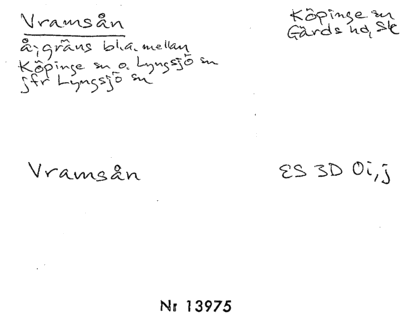 Vramsån
Köpinge sn
Gärds hd, Sk
å, gräns bl.a. mellan
Köpinge sn o. Lyngsjö sn
jfr Lyngsjö sn
Vramsån
ES 3D 0i,j
Nr 13975